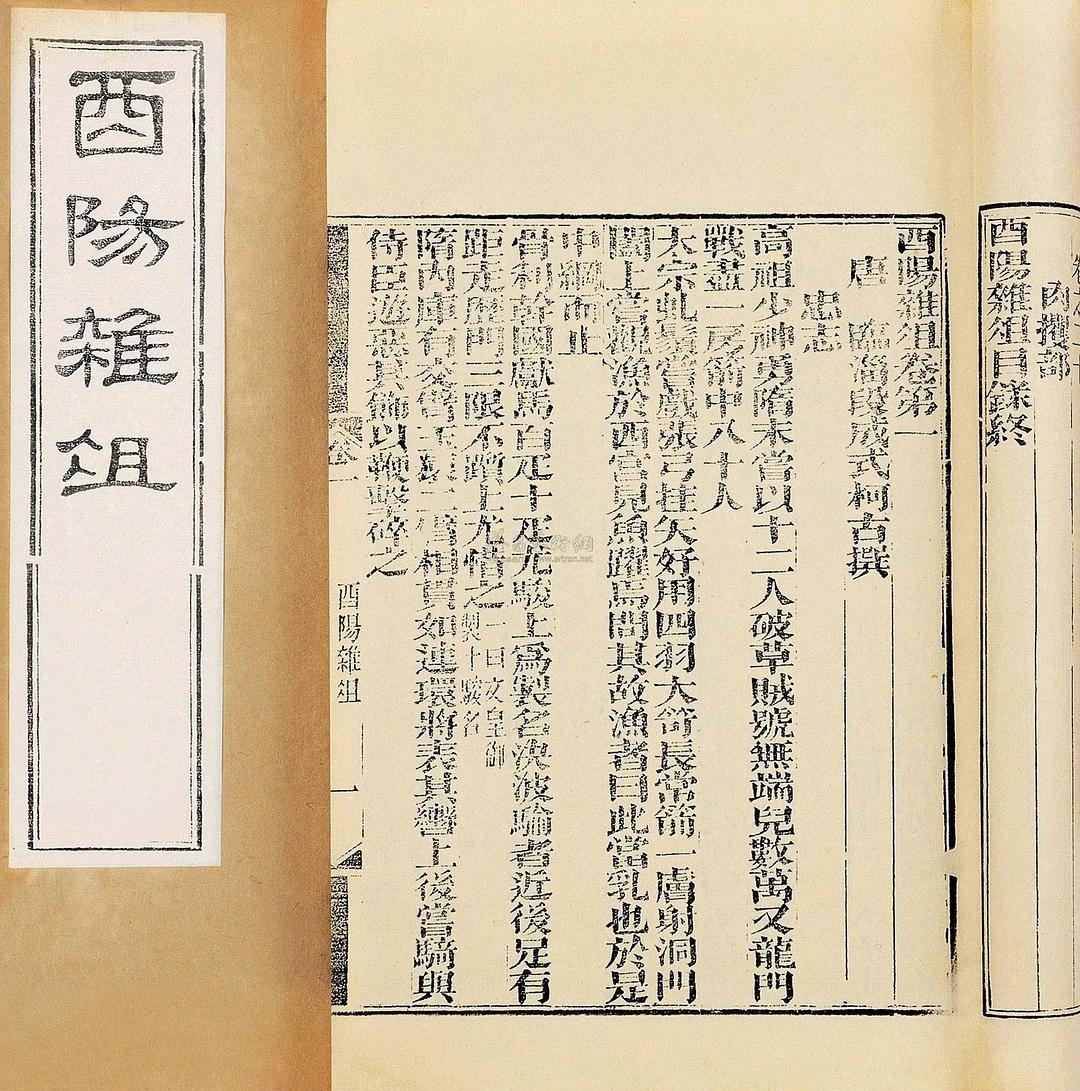 酉陽雜俎
肉攫部
酉陽雜俎目錄終
酉陽雜俎卷第一
唐 臨淄段成式柯古撰
忠志
高祖少神勇隋末嘗以十二人破草賊號無端兒數萬又龍門
戰盡一房箭中八十人
太宗虬鬚嘗戲張弓挂矢好用四羽大笴長常箭一膚射洞門
闔上嘗觀漁於西宮見魚躍焉問其故漁者曰此當乳也於是
中網而止
骨利幹國獻馬百疋十疋尤駿上為製名決波騟者近後足有
距走歷門三限不躓上尤惜之一曰文皇御製十駿名
隋內庫有交臂玉猿二臂相貫如連環將表其轡上後嘗騎與
侍臣遊惡其飾以鞭擊碎之
卷一
酉陽雜俎
一
www.artron.net